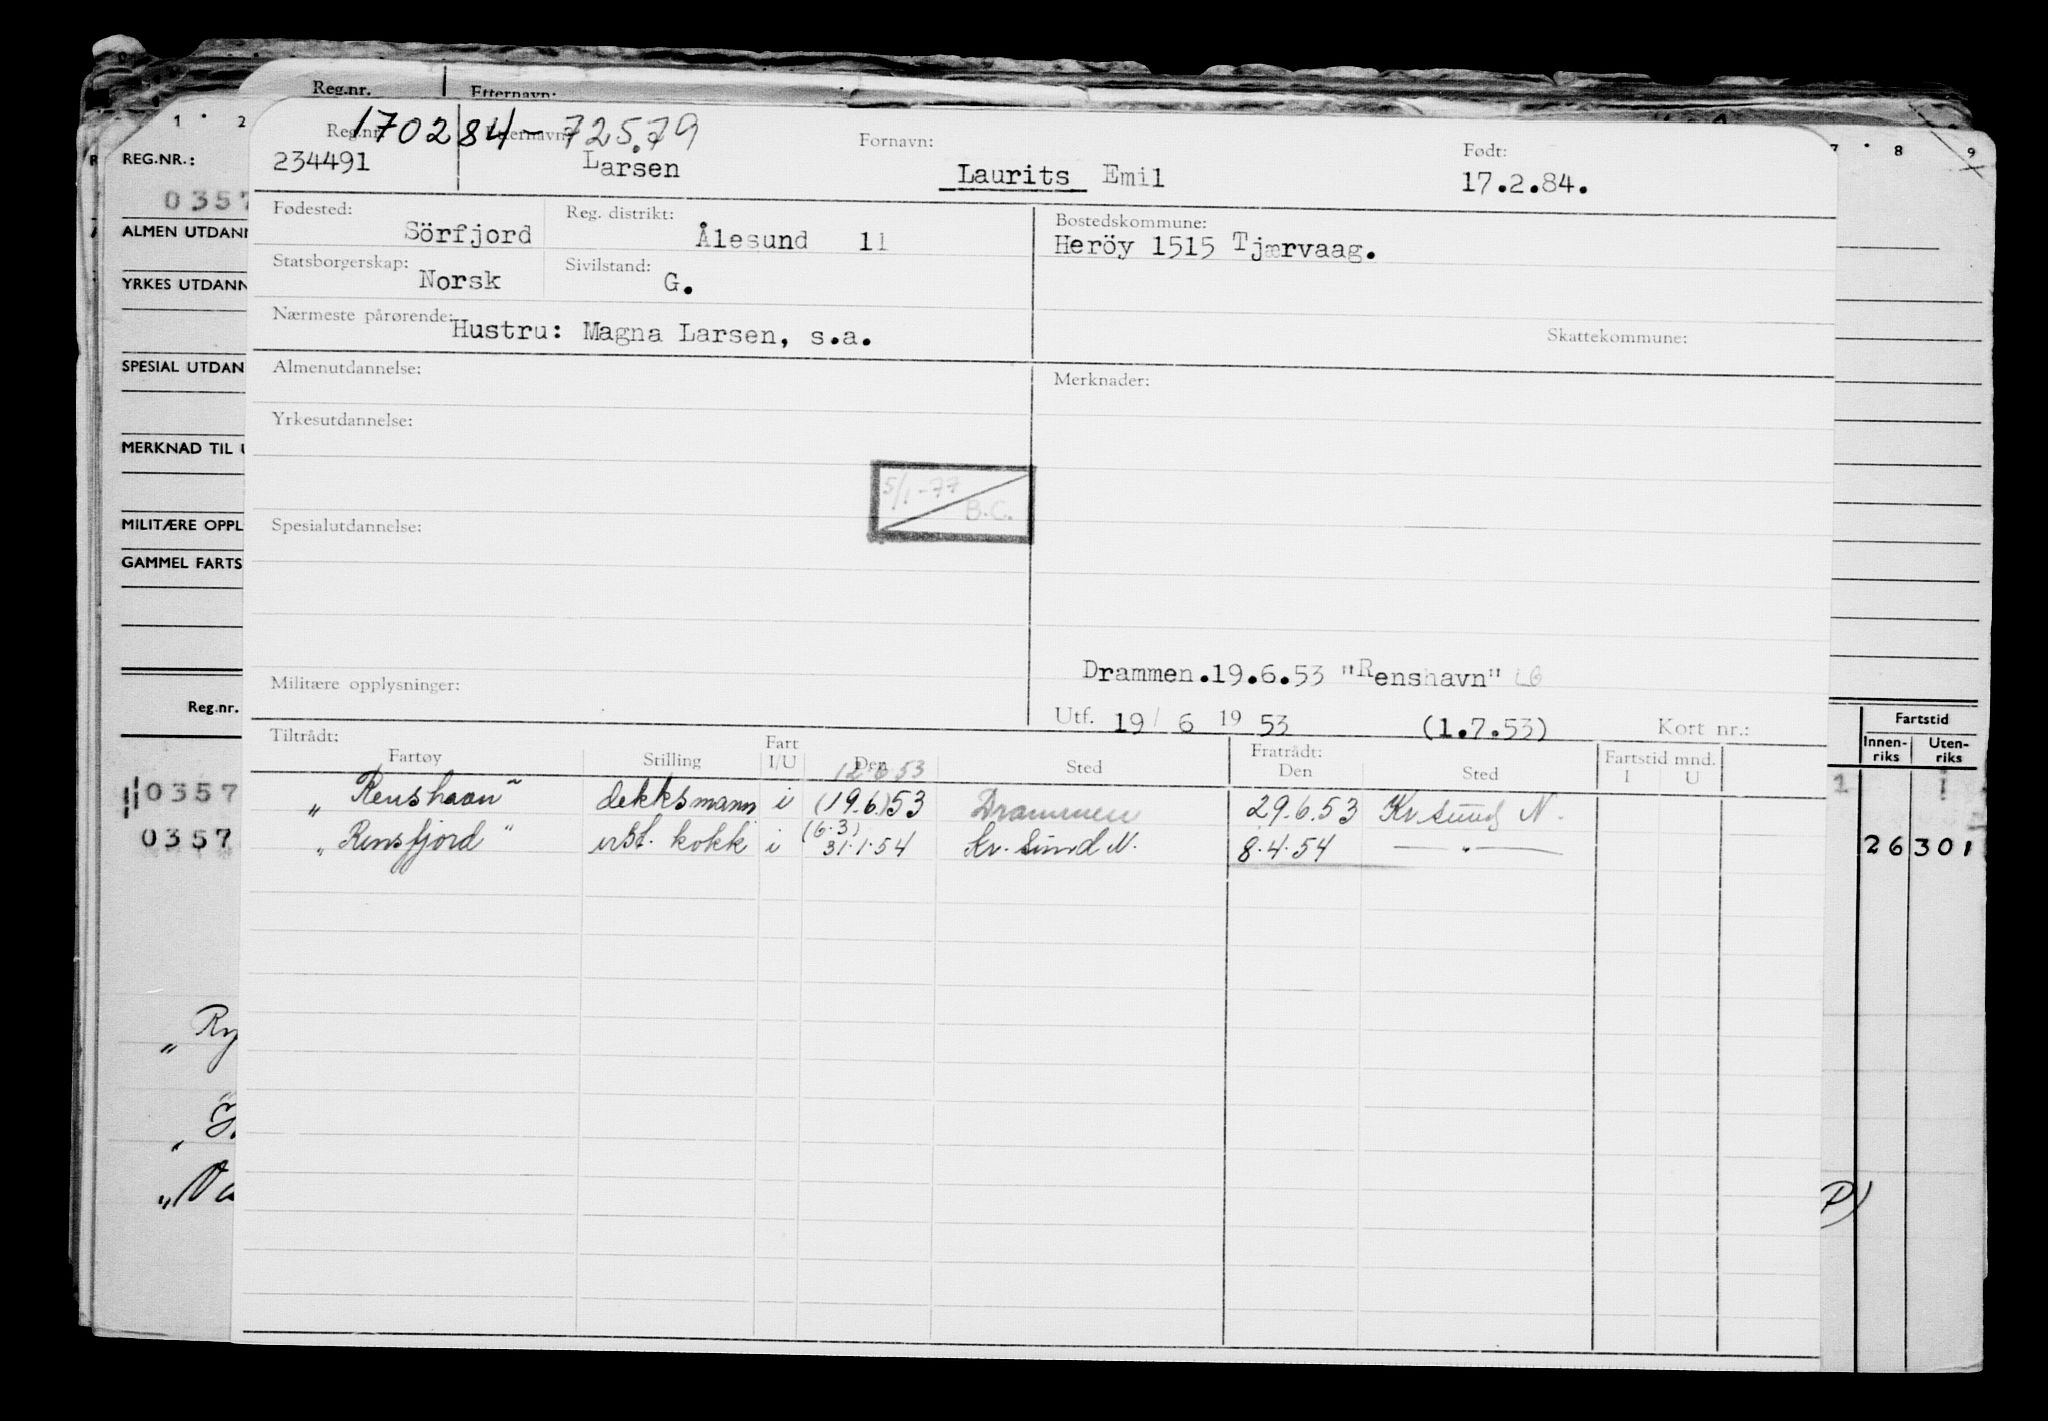 Reg.nr. Etternavn:
1 2 170284-72579 7 8 9
REG.NR.: Reg.nr. Etternavn: Fornavn: Født:
234491 Larsen Laurits Emil 17.2.84.
0357
Fødested: Sörfjord Reg. distrikt: Ålesund 11 Bostedskommune:
Heröy 1515 Tjærvaag.
ALMEN UTDANN
Statsborgerskap: Norsk Sivilstand: G.
YRKES UTDANN
Nærmeste pårørende: Hustru: Magna Larsen, s.a. Skattekommune:
SPESIAL UTDAN Almenutdannelse: Merknader:
Yrkesutdannelse:
MERKNAD TIL U
5/1-77 B.C.
MILITÆRE OPPL Spesialutdannelse:
GAMMEL FARTS
Drammen.19.6.53 "Renshavn"
Militære opplysninger:
Reg.nr. Utf. 19/ 6 19 53 (1.7.53) Kort nr.: Fartstid
Tiltrådt: Fratrådt: Innen- Uten-
Fartøy Stilling Fart I/U Den Sted Den Sted Fartstid mnd. I U riks riks
12.6.53
0357 "Renshavn" dekksmann i (19.6)53 Drammen 29.6.53 Kr.sund N. 1
(6.3)
0357 "Rensfjord" erst. kokk i 31.1.54 Kr. sund N. 8.4.54 — " — 26 301
"Ry
"Va P)